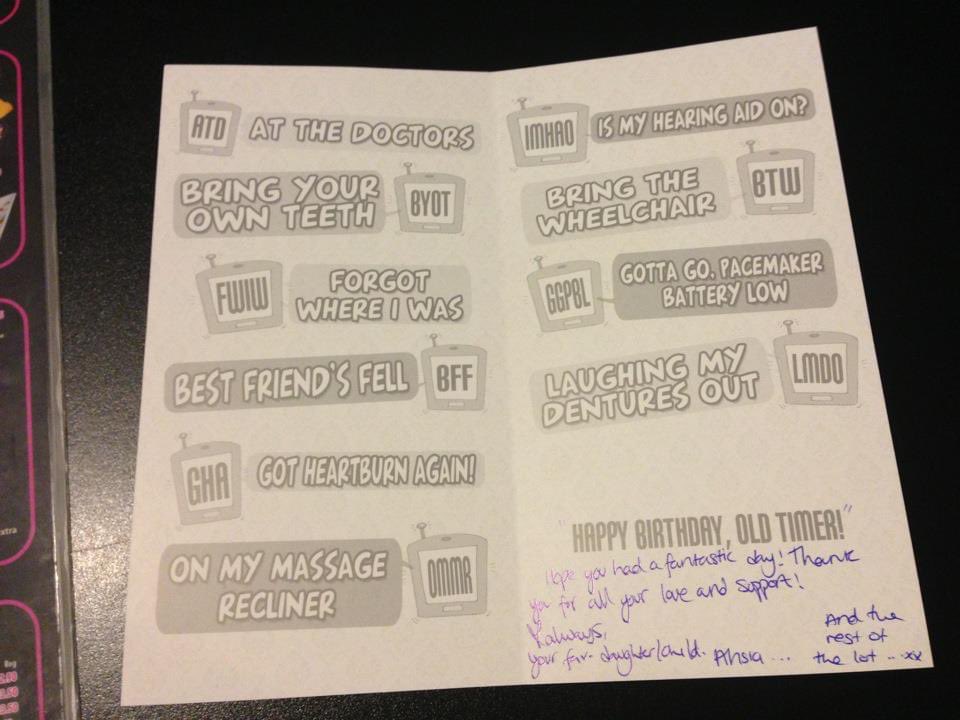 ATD AT THE DOCTORS
BRING YOUR
OWN TEETH BYOT
FWIW FORGOT
WHERE I WAS
BEST FRIEND'S FELL BFF
GHA GOT HEARTBURN AGAIN!
ON MY MASSAGE
RECLINER OMMR
IMHAO IS MY HEARING AID ON?
BRING THE
WHEELCHAIR BTW
GGPBL GOTTA GO, PACEMAKER
BATTERY LOW
LAUGHING MY
DENTURES OUT LMDO
"HAPPY BIRTHDAY, OLD TIMER!"
Hope you had a fantastic day! Thank
you for all your love and support!
always,
your fav. daughter/child.
And the
rest of
the lot ... xx
extra
Reg